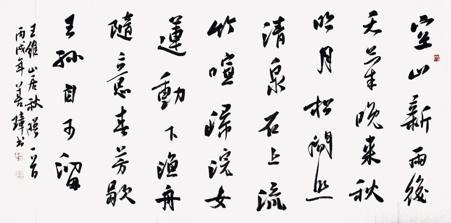 空山新雨後
天氣晚來秋
明月松間照
清泉石上流
竹喧歸浣女
蓮動下漁舟
隨意春芳歇
王孫自可留
王維山居秋暝一首
丙戌年善璋書